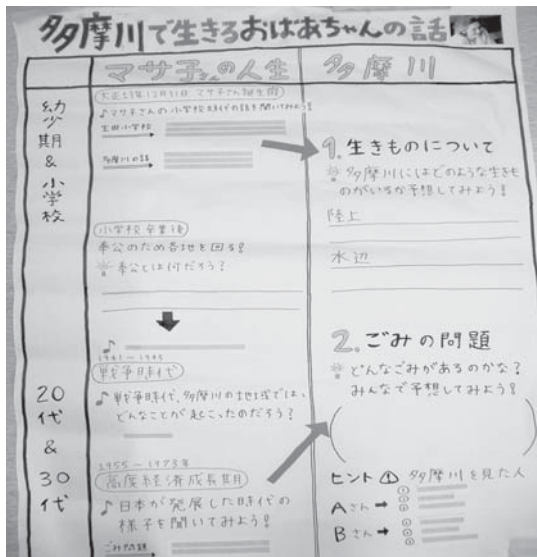 多摩川で生きるおばあちゃんの話
マサ子さんの人生
多摩川
幼少期&小学校
大正13年12月31日 マサ子さん誕生
♪マサ子さんの小学校時代の話を聞いてみよう!
生田小学校
多摩川の話
小学校卒業後
奉公のため各地を回る!
奉公とは何だろう?
20代&30代
1941〜1945
戦争時代
♪戦争時代、多摩川の地域では、
どんなことが起こったのだろう?
1955〜1973年
高度経済成長期
♪日本が発展した時代の
様子を聞いてみよう!
ごみ問題
1.生きものについて
多摩川にはどのような生きも
のがいるか予想してみよう!
陸上
水辺
2.ごみの問題
どんなごみがあるのかな?
みんなで予想してみよう!
ヒント① 多摩川を見た人
Aさん→①
②
③
Bさん→①
②
③